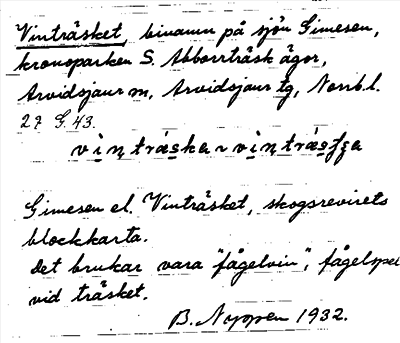 Vinträsket, binamn på sjön Gimesen,
kronoparken S. Abborrträsk ägor,
Arvidsjaur sn, Arvidsjaurs tg, Norrb.l.
27 G. 43.
Gimesen el. Vinträsket, skogsrevirets
blockkarta.
det brukar vara "fågelvin", fågelspel
vid träsket.
B. Nyppen 1932.